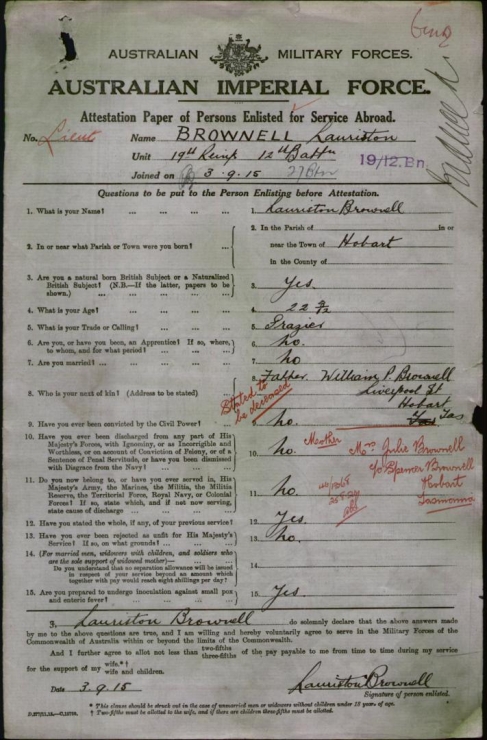 AUSTRALIAN MILITARY FORCES.
AUSTRALIAN IMPERIAL FORCE.
Attestation Paper of Persons Enlisted for Service Abroad.
No. Lieut Name BROWNELL Lauriston
Unit 19th Reinf 12th Battn 19/12.Bn
Joined on 3.9.15 27 Btn
Questions to be put to the Person Enlisting before Attestation.
1. What is your Name? ... ... ... 1. Lauriston Brownell
2. In or near what Parish or Town were you born? ... 2. In the Parish of in or
near the Town of Hobart
in the County of
3. Are you a natural born British Subject or a Naturalized British Subject? (N.B.—If the latter, papers to be shown.) 3. Yes.
4. What is your Age? 4. 22
5. What is your Trade or Calling? 5. Grazier
6. Are you, or have you been, an Apprentice? If so, where, to whom, and for what period? 6. no.
7. Are you married? 7. no
8. Who is your next of kin? (Address to be stated) 8. Father William P. Brownell
Liverpool St
Hobart
Tas
Stated to be deceased
9. Have you ever been convicted by the Civil Power? 9. no.
10. Have you ever been discharged from any part of His Majesty's Forces, with Ignominy, or as Incorrigible and Worthless, or on account of Conviction of Felony, or of a Sentence of Penal Servitude, or have you been dismissed with Disgrace from the Navy? 10. no.
Mother Mrs Julie Brownell
c/o Spencer Brownell
Hobart
Tasmania
11. Do you now belong to, or have you ever served in, His Majesty's Army, the Marines, the Militia, the Militia Reserve, the Territorial Force, Royal Navy, or Colonial Forces? If so, state which, and if not now serving, state cause of discharge 11. no.
12. Have you stated the whole, if any, of your previous service? 12. Yes.
13. Have you ever been rejected as unfit for His Majesty's Service? If so, on what grounds? 13. no.
14. (For married men, widowers with children, and soldiers who are the sole support of widowed mother)—
Do you understand that no separation allowance will be issued in respect of your service beyond an amount which together with pay would reach eight shillings per day? 14.
15. Are you prepared to undergo inoculation against small pox and enteric fever? 15. Yes.
I, Lauriston Brownell do solemnly declare that the above answers made
by me to the above questions are true, and I am willing and hereby voluntarily agree to serve in the Military Forces of the
Commonwealth of Australia within or beyond the limits of the Commonwealth.
And I further agree to allot not less than two-fifths three-fifths of the pay payable to me from time to time during my service
for the support of my wife.*† wife and children.
Date 3.9.15 Lauriston Brownell
Signature of person enlisted.
* This clause should be struck out in the case of unmarried men or widowers without children under 18 years of age.
† Two-fifths must be allotted to the wife, and if there are children three-fifths must be allotted.